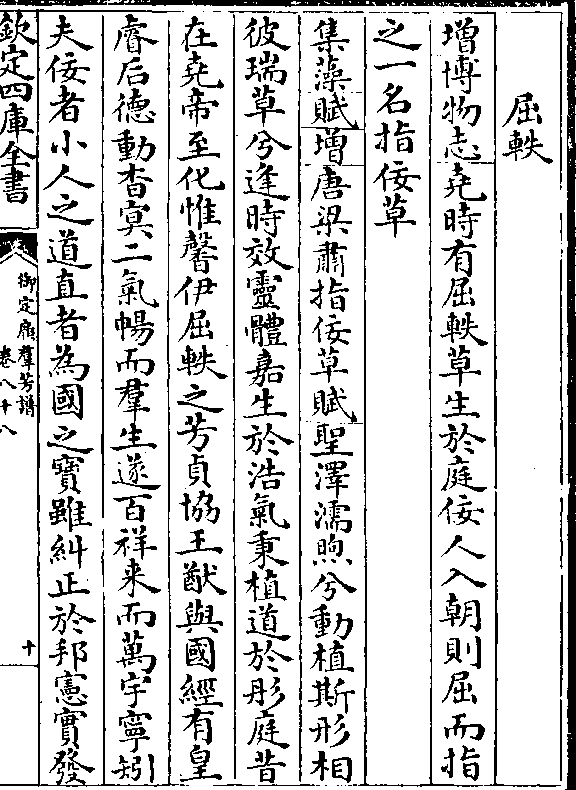 屈軼
增博物志堯時有屈軼草生於庭佞人入朝則屈而指
之一名指佞草
集藻賦增唐梁肅指佞草賦聖澤濡煦兮動植斯形相
彼瑞草兮逢時效靈體嘉生於浩氣秉植道於彤庭昔
在堯帝至化惟馨伊屈軼之芳貞協王猷與國經有皇
睿后德動杳冥二氣暢而羣生遂百祥来而萬宇寧矧
夫佞者小人之道直者為國之寶雖糾正於邦憲實發
欽定四庫全書
御定廣羣芳譜
卷八十八
十